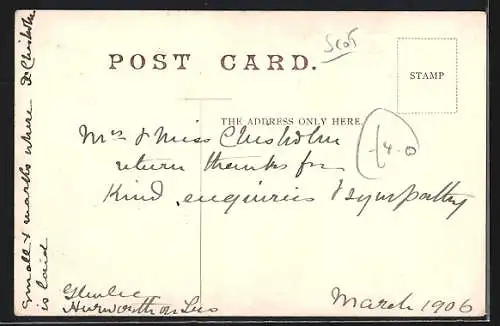 Scot
POST CARD.
STAMP
THE ADDRESS ONLY HERE.
-4-0
Mrs & Miss Chisholm
return thanks for
Kind enquiries & sympathy
Glenlee
Hurworth on Tees
March 1906
small + marks where Dr Chisholm
is laid